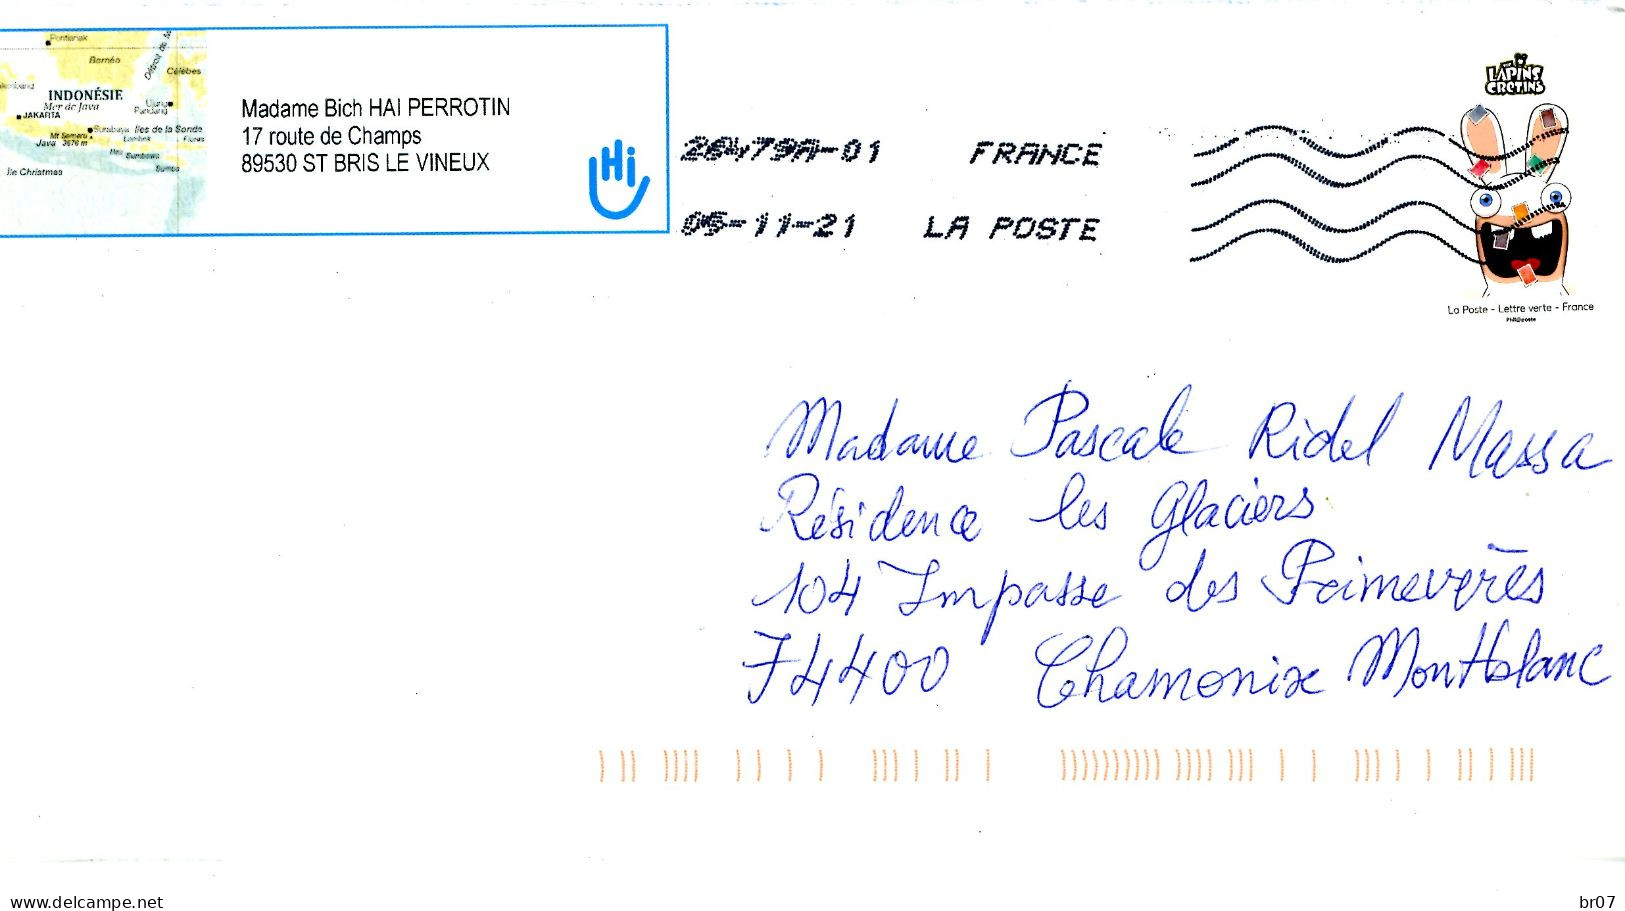 Pontianak
Bornéo
Détroit de
Célèbes
INDONÉSIE
Mer de Java
JAKARTA
Ujung
Pandang
Surabaya Iles de la Sonde
Mt Semeru
Java 3676 m
Lombok Flores
Sumbawa
Sumba
Ile Christmas
Madame Bich HAI PERROTIN
17 route de Champs
89530 ST BRIS LE VINEUX
Hi
26479A-01 FRANCE
05-11-21 LA POSTE
THE LAPINS
CRETINS
La Poste - Lettre verte - France
Phil@poste
Madame Pascale Ridel Massa
Résidence les Glaciers
104 Impasse des Primevères
74400 Chamonix Montblanc
www.delcampe.net
br07